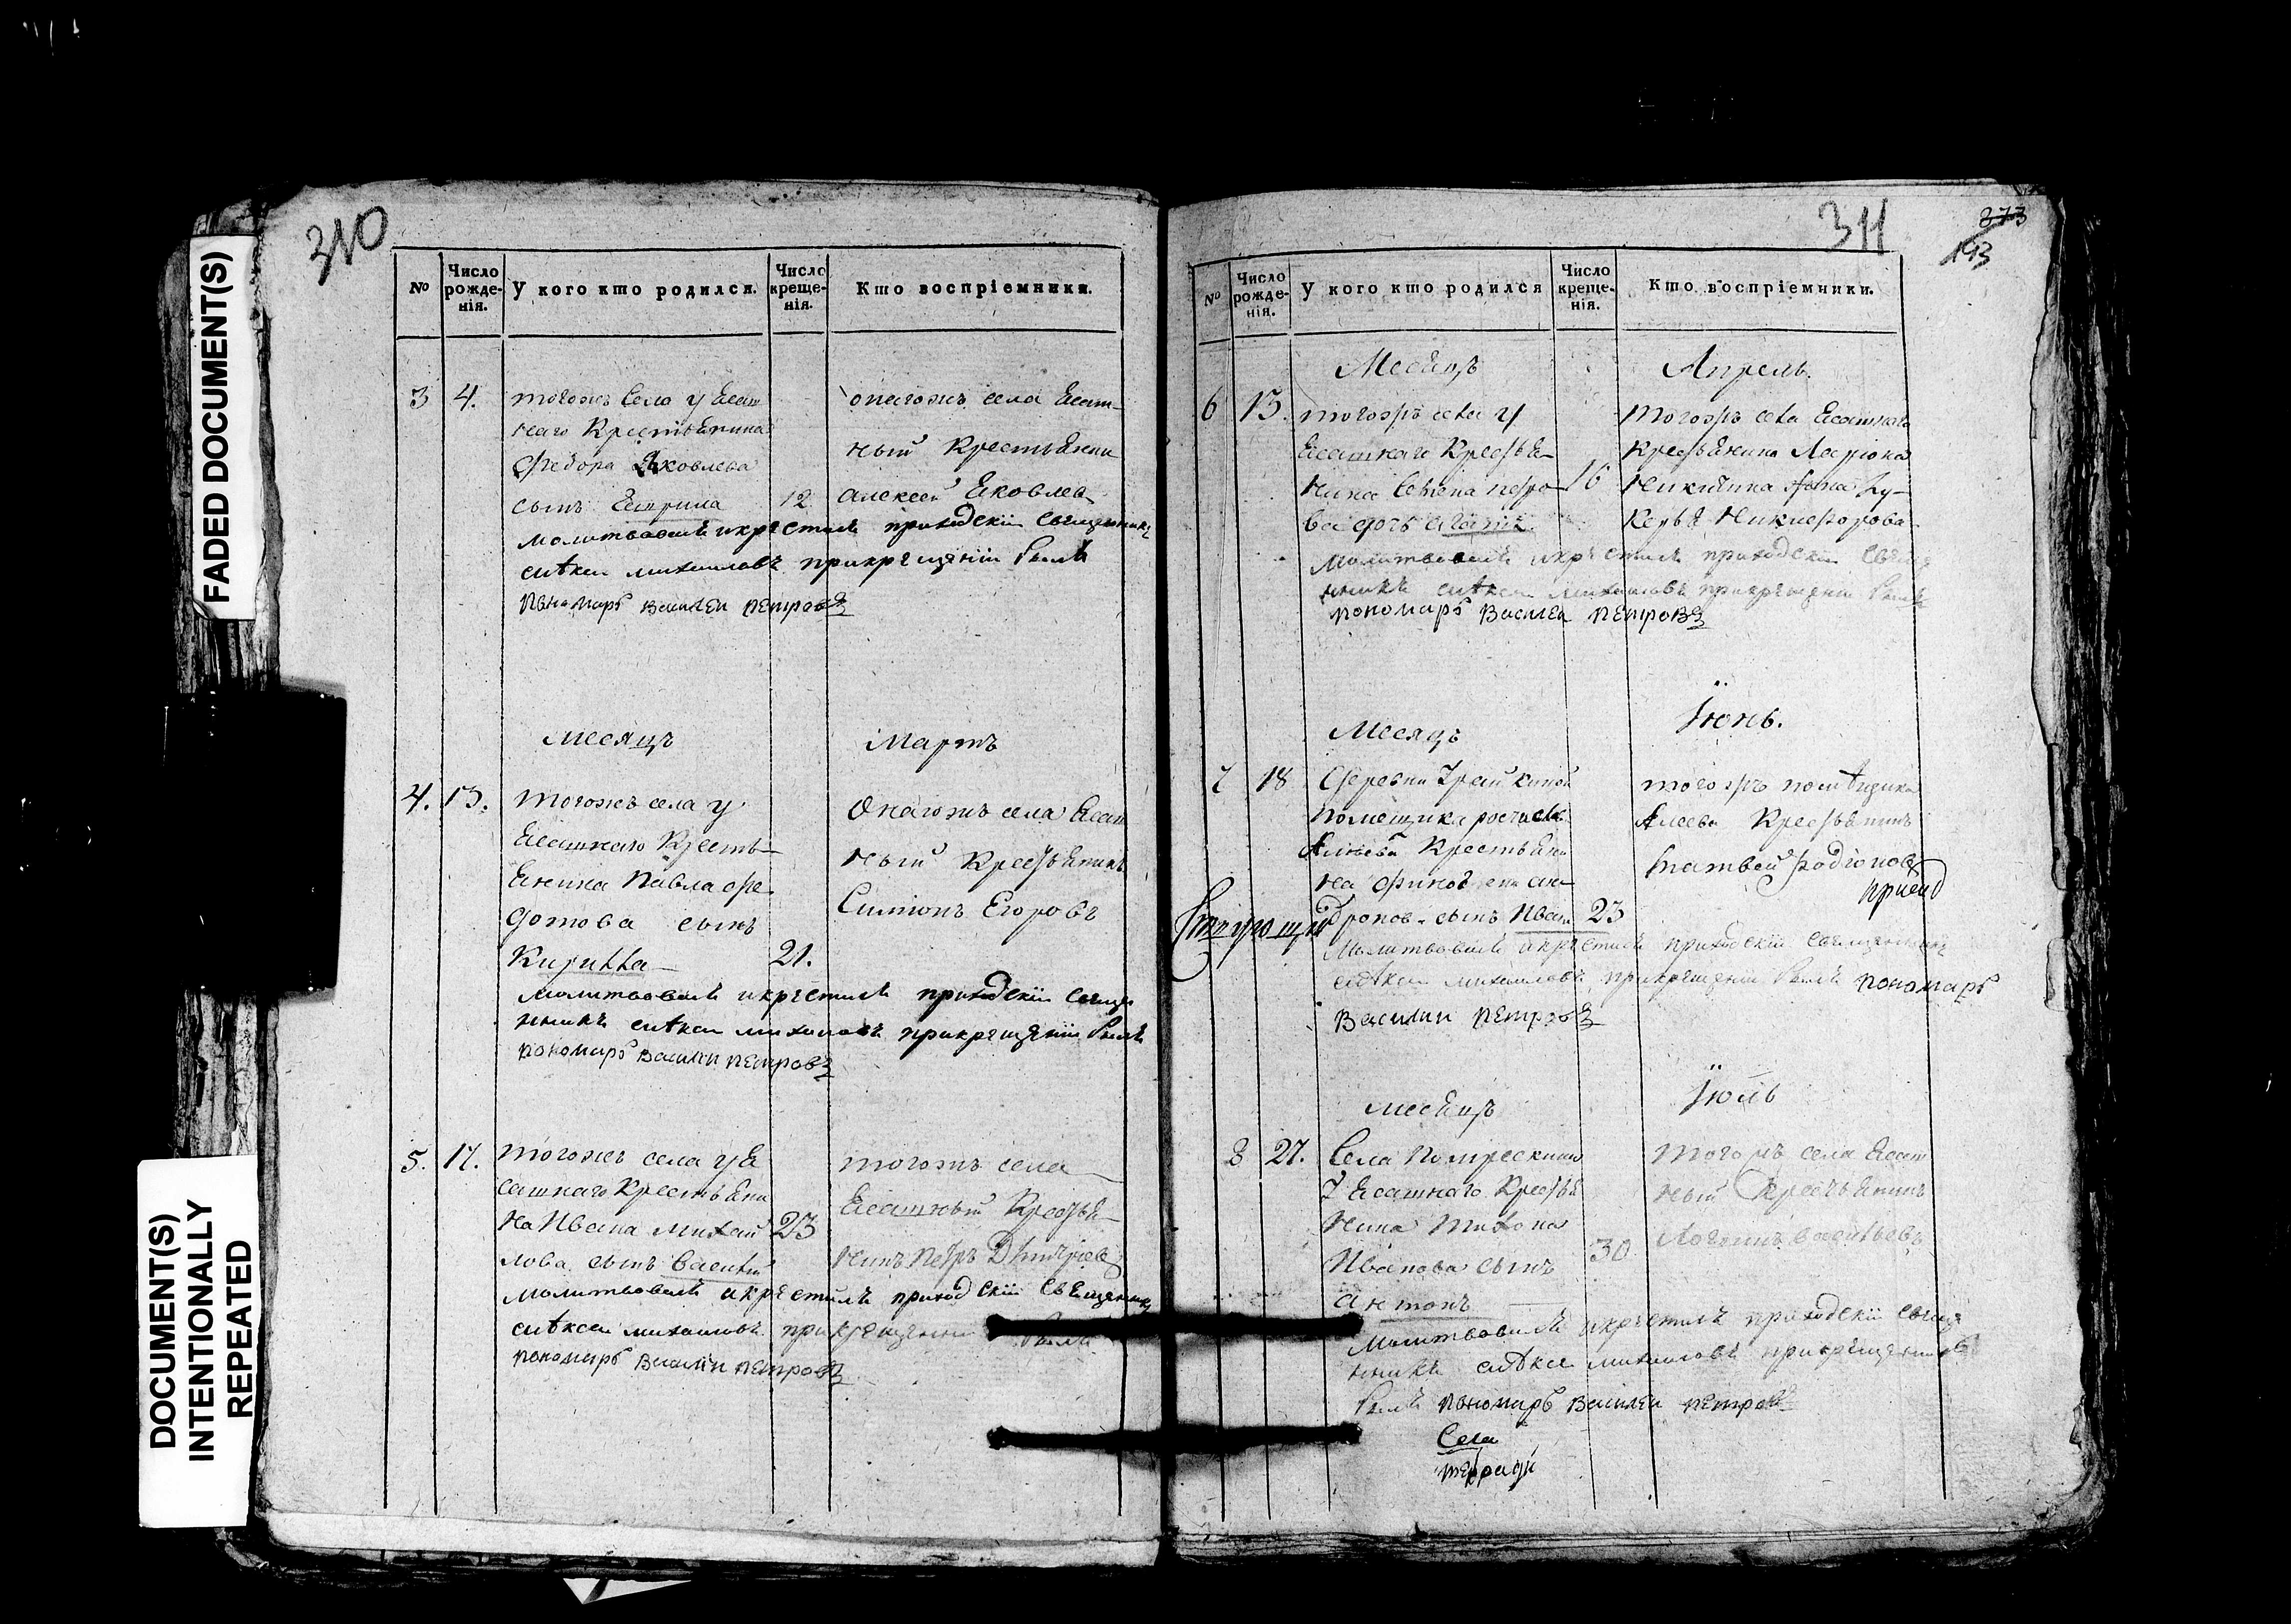 FADED DOCUMENT(S)
DOCUMENT(S)
INTENTIONALLY
REPEATED
310
№
Число рожденія.
У кого кто родился.
Число крещенія.
Кто воспріемники.
3 4. тогожъ Села у Ясаш
наго Крестьянина
Федора Яковлева
сынъ 12
онагожъ села Ясаш-
ный Крестьянин
алексей Яковлев
молитвовалъ икрестилъ приходскіи священникъ
алѣксеи михаиловъ прикрещеніи былъ
пономарь Василеи петровъ
Месяцъ Мартъ
4. 13. тогожъ села у
Ясашнаго Кресть-
янина Павла Фе
дотова сынъ
Кирилла 21.
Онагожъ села Ясаш
ный Крестьянинъ
Симионъ Егоровъ
молитвовалъ икрестилъ приходскіи свяще
нникъ алѣксеи михаиловъ прикрещеніи былъ
пономарь Василии петровъ
5. 17. тогожъ села у Я
сашнаго Крестьяни
на Ивана михаи 23
лова сынъ Василий
тогожъ села
Ясашный Крестья-
нинъ Петръ Дмитриев
молитвовалъ икрестилъ приходскіи священникъ
алѣксеи михаиловъ прикрещении былъ
пономарь Василии петровъ
311
273
193
№
Число рожденія.
У кого кто родился
Число крещенія.
Кто воспріемники.
Месяцъ Апрель.
6 13. тогожъ села у
Ясашнаго Крестья-
нина Семена петро- 16
ва дочь
тогожъ села Ясашнаго
крестьянина Лариона
Никитина жена Лу-
керья Никифорова
молитвовалъ икрестилъ приходскіи свяще
нникъ алѣксеи михаиловъ прикрещении былъ
пономарь Василеи петровъ
Месяцъ Іюнь.
7 18 Деревни
помещика
Алеева Крестьяни
на ан-
дронов. сынъ Иван 23
тогожъ помѣщика
Алеева Крестьянинъ
матвей родіонов
молитвовалъ икрестилъ приходскіи священникъ
алѣксеи михаиловъ прикрещеніи былъ пономарь
Василии петровъ
месяцъ Іюль
8 27. Села
У Ясашнаго Крестья
нина Тихона
Иванова сынъ 30
антонъ
тогожъ села Ясаш
ный Крестьянинъ
Логинъ васильевъ
молитвовалъ икрестилъ приходскіи свяще
нникъ алѣксеи михаиловъ прикрещении
былъ пономарь Василеи петровъ
Села